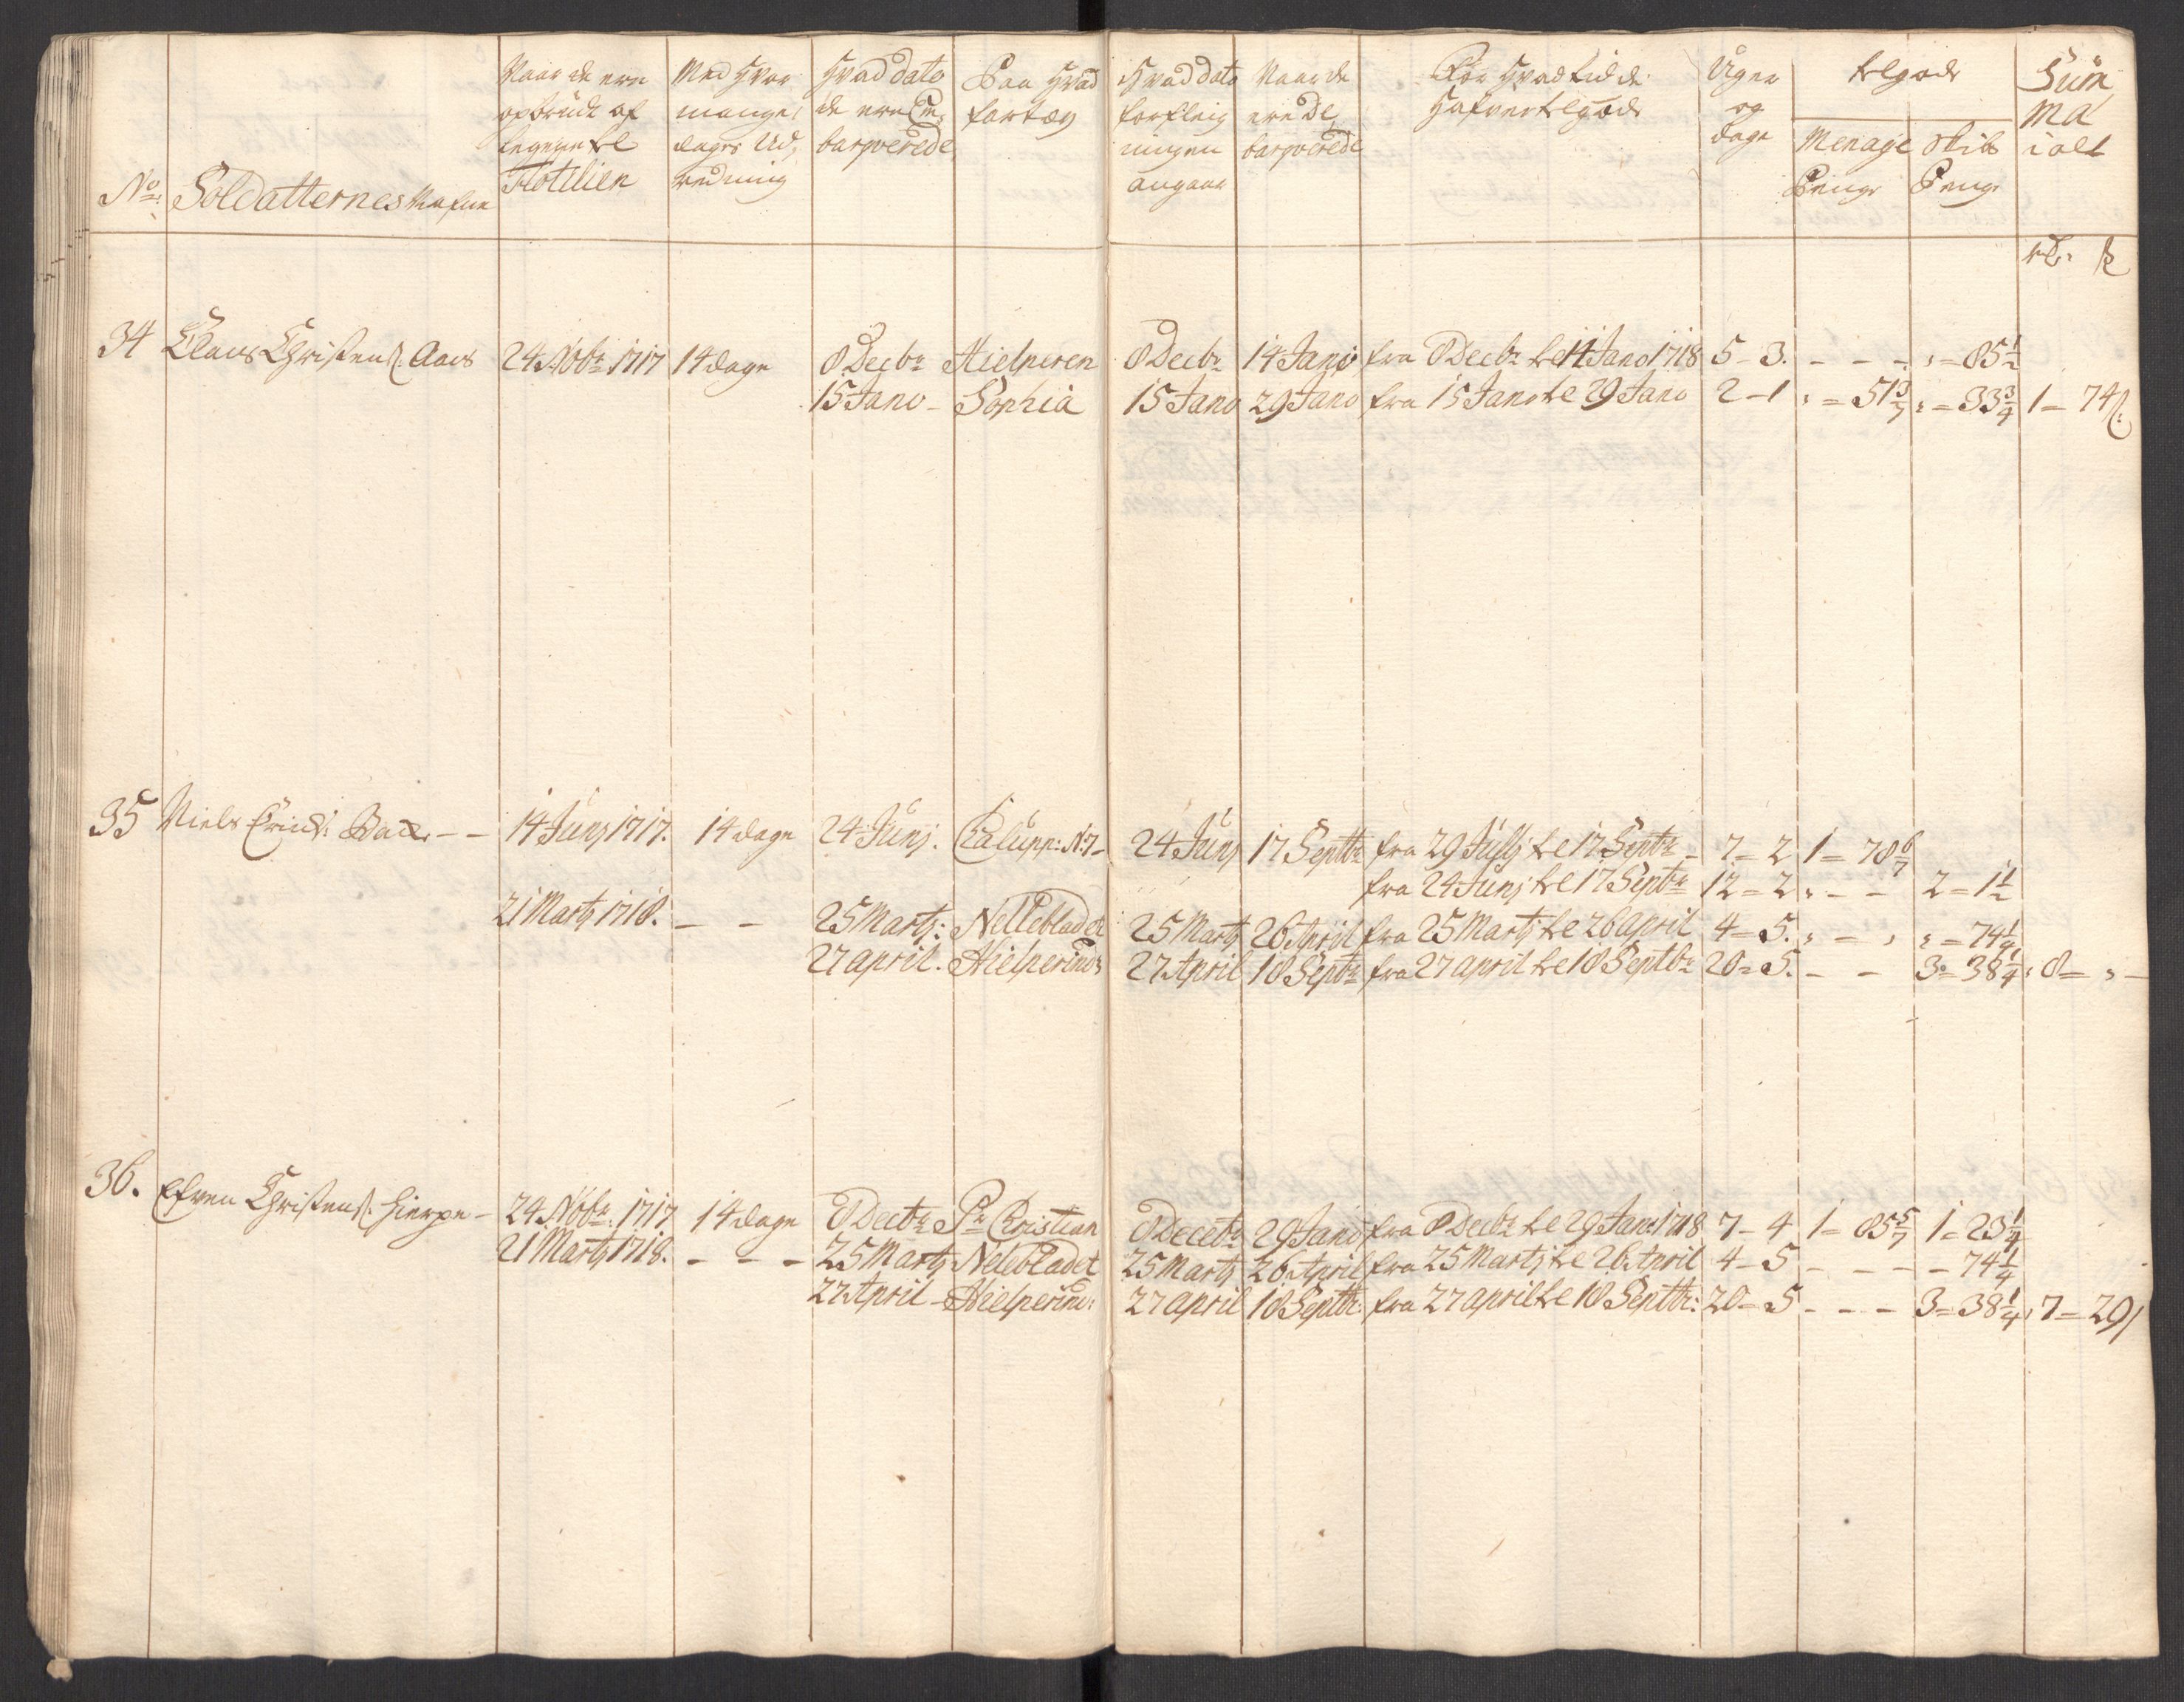 No: Soldatternes Nafne
Naar de ere opbrudt af legget til Flotilien
Med hvor mange dages Ud, redning
Hvad dato de ere Em, barqverede
Paa hvad fartøy
Hvad dato forfleig ningen angaar
Naar de ere De, barqverede
For hvad tid de hafver tilgode
Uger og dage
tilgode
Menage Penge
Skibs Penge
Sum ma i alt
rd. ß
34 Claus Christens: Aaes 24 Nobr 1717 14 dage 8 Decbr Hielperen 8 Decbr 14 Janv fra 8 Decbr til 14 Janv 1718 5 - 3. - - - „ = 85 1/2
15 Janv - Sophia 15 Janv 29 Janv fra 15 Janv til 29 Janv 2 - 1 „ = 51 3/7 „ = 33 3/4 1 - 74 ß:
35 Niels 14 Junj 1717. 14 dage 24 Junj. Chalupp: N: 7 - 24 Junj 17 Septbr fra 29 Julj til 17 Septbr - 7 = 2 1 = 78 6/7
fra 24 Junj til 17 Septbr 12 = 2 „ - - 2 = 1 1/2
21 Martz 1718. - - 25 Martz: Nellebladet 25 Martz 26 April fra 25 Martz til 26 april 4 = 5. „ - „ „ = 74 1/4
27 april. Hielperinde: 27 April 18 Septbr fra 27 april til 18 Septbr 20 = 5. - - 3 = 38 1/4 „ 8 = „ -
36. Efven Christens: Hierpe - 24 Nobr: 1717 14 dage 8 Decbr Pr Cristian 8 Decebr 29 Janv fra 8 Decbr til 29 Janv 1718 7 - 4 1 = 85 5/7 1 = 23 1/4
21 Martz 1718. - - - 25 Martz Nelebladet 25 Martz 26 April fra 25 Martz til 26 April 4 - 5 - - - - 74 1/4
27 April - Hielperind: 27 april 18 Septbr: fra 27 april til 18 Septbr: 20 = 5 - - - 3 = 38 1/4 „ 7 = 29 ß